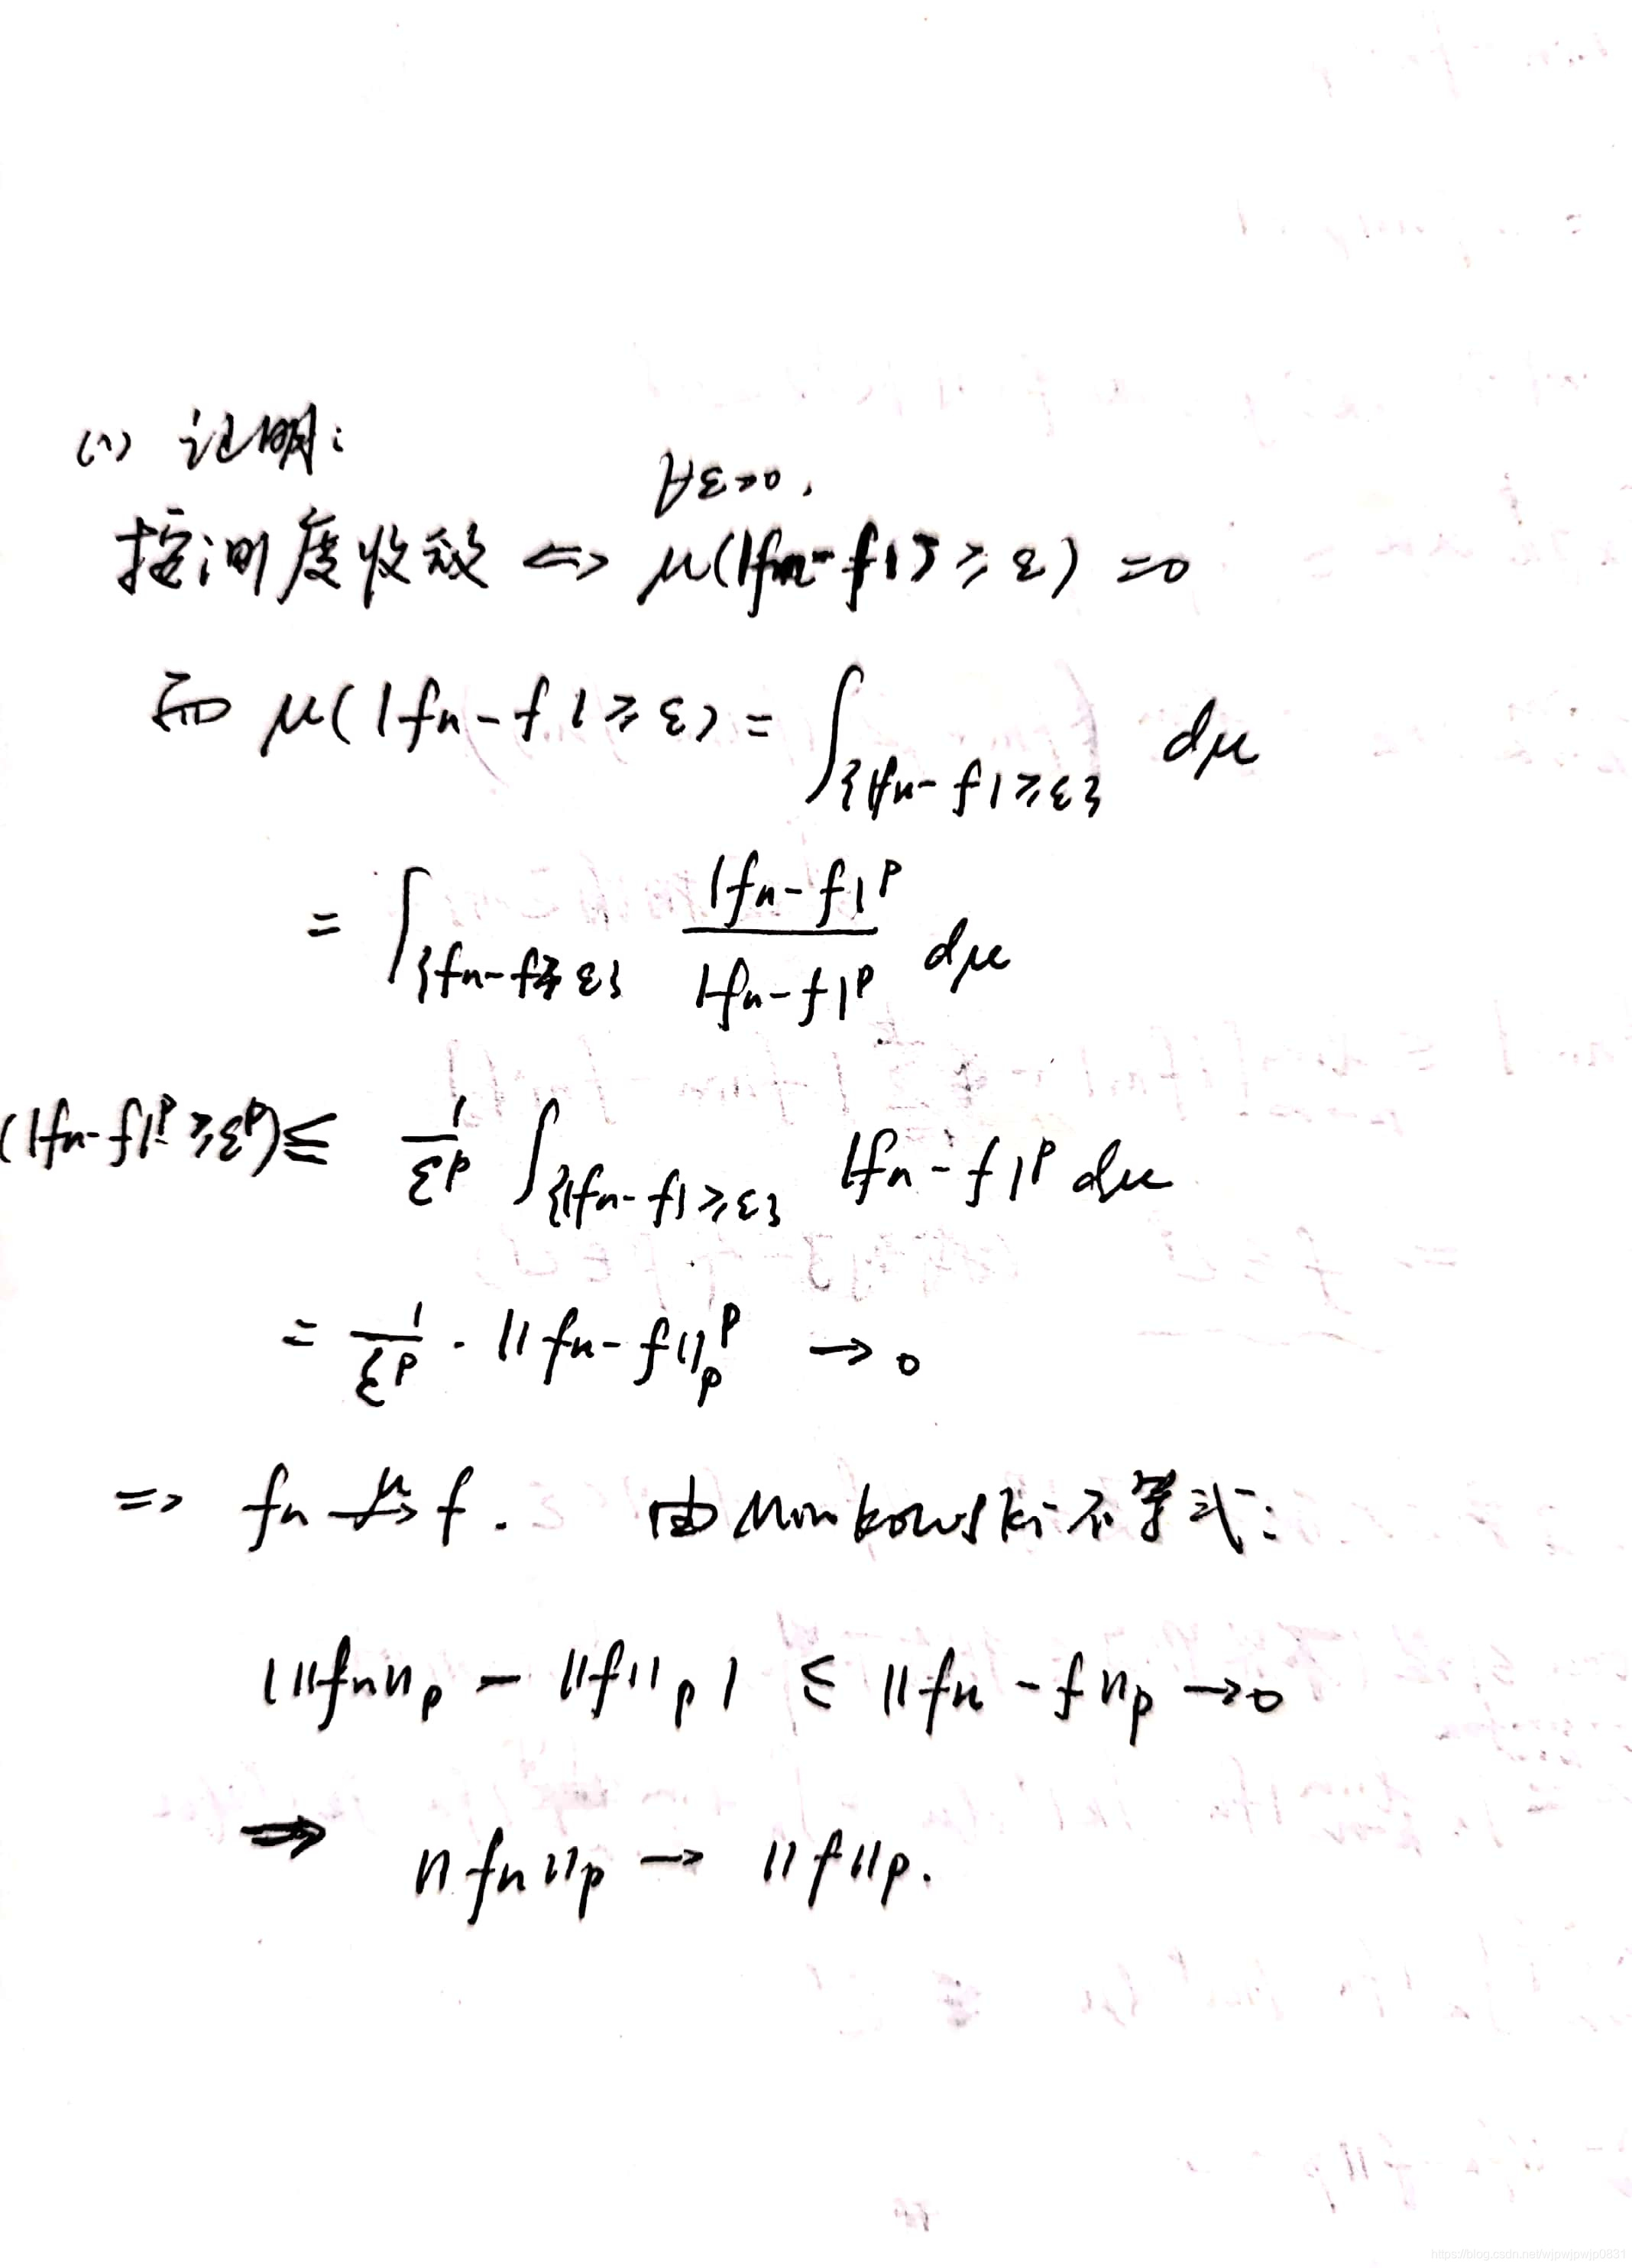 (1) 证明:
∀ε>0,
按测度收敛 <=> μ(|fn-f| ≥ ε) =0
而 μ(|fn-f| ≥ ε) = ∫_{|fn-f|≥ε} dμ
= ∫_{fn-f≥ε} |fn-f|^p / |fn-f|^p dμ
(|fn-f|^p ≥ ε^p) ≤ 1/ε^p ∫_{|fn-f|≥ε} |fn-f|^p dμ
= 1/ε^p · ||fn-f||_p^p → 0
=> fn →^μ f. 由Minkowski不等式:
| ||fn||_p - ||f||_p | ≤ ||fn-f||_p → 0
⇒ ||fn||_p → ||f||_p.
https://blog.csdn.net/wjpwjpwjp0831